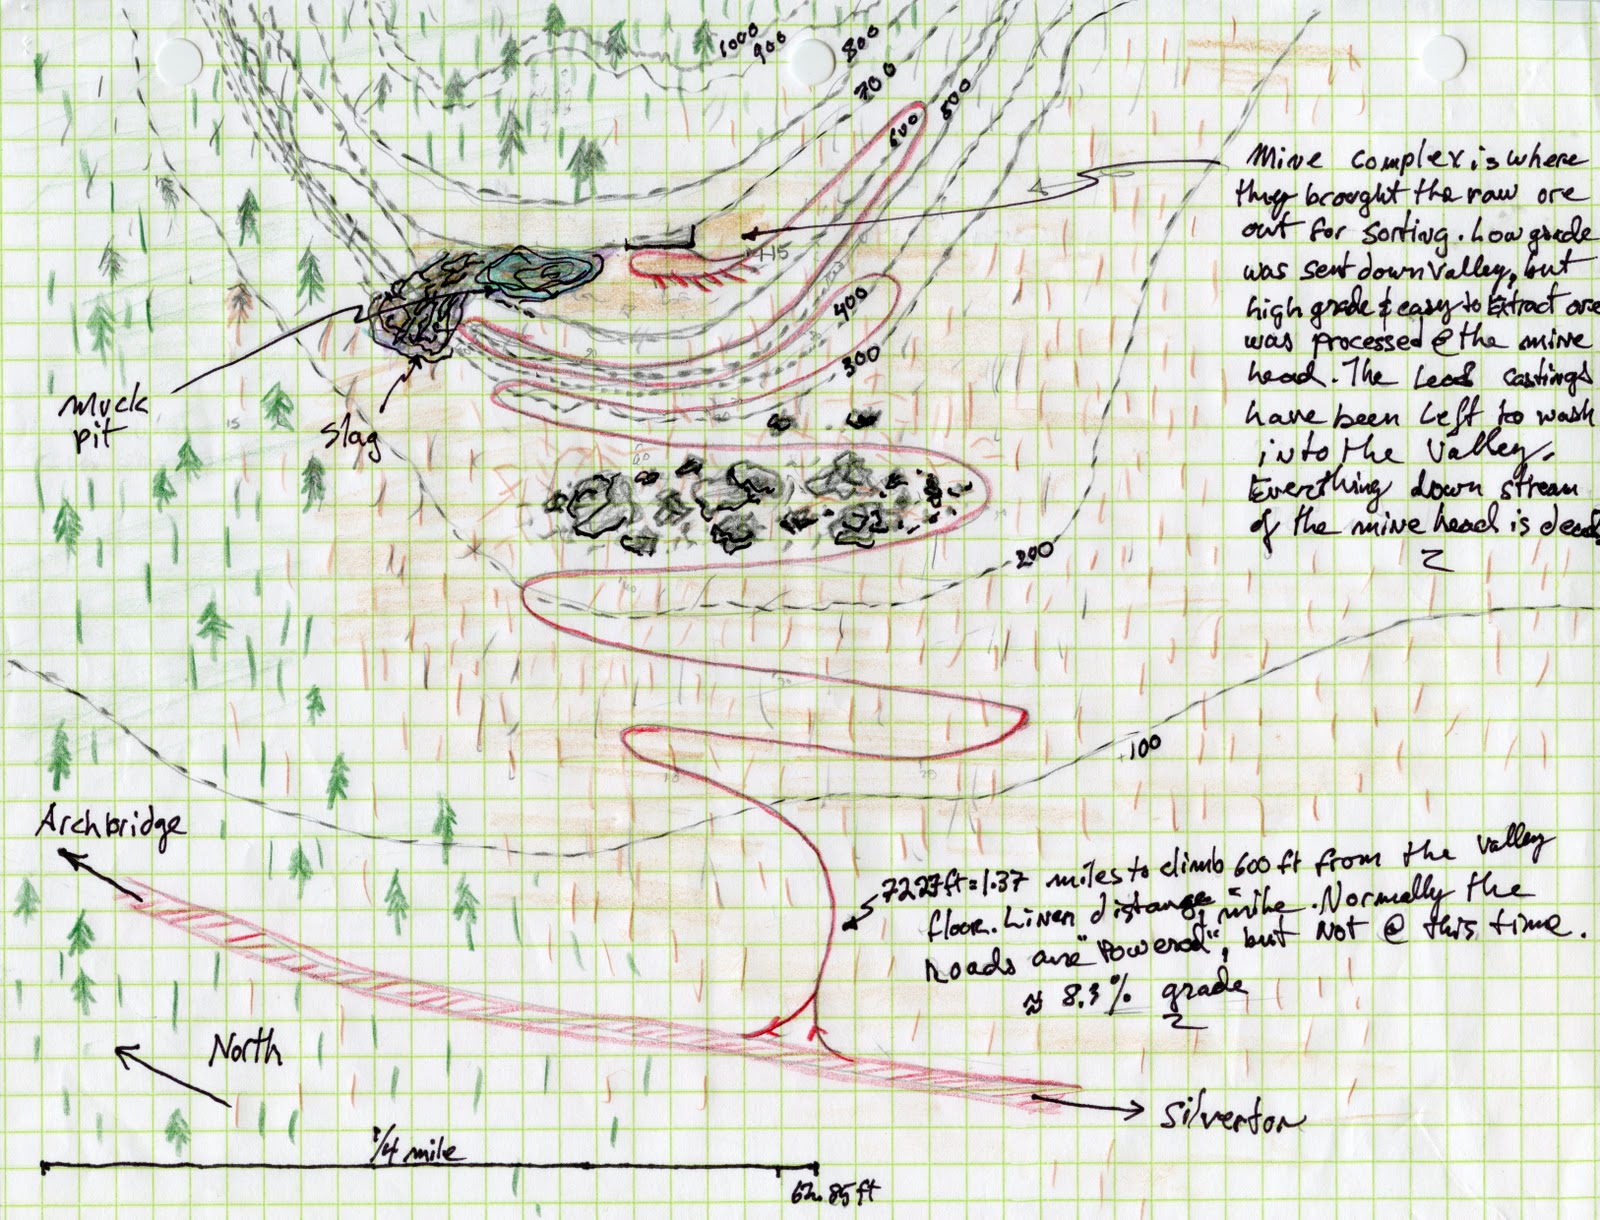 1000
900
800
700
600
500
Mine complex is where
they brought the raw ore
out for sorting. Low grade
was sent down valley, but
high grade & easy to Extract ore
was processed @ the mine
head. The Lead castings
have been left to wash
into the Valley.
Everything down stream
of the mine head is dead
+15
400
300
muck
pit
slag
15
200
100
Archbridge
7227ft = 1.37 miles to climb 600 ft from the valley
floor. Linear distance, mine. Normally the
Roads are "Powered", but Not @ this time.
≈ 8.3% grade
North
Silverton
1/4 mile
62.85ft